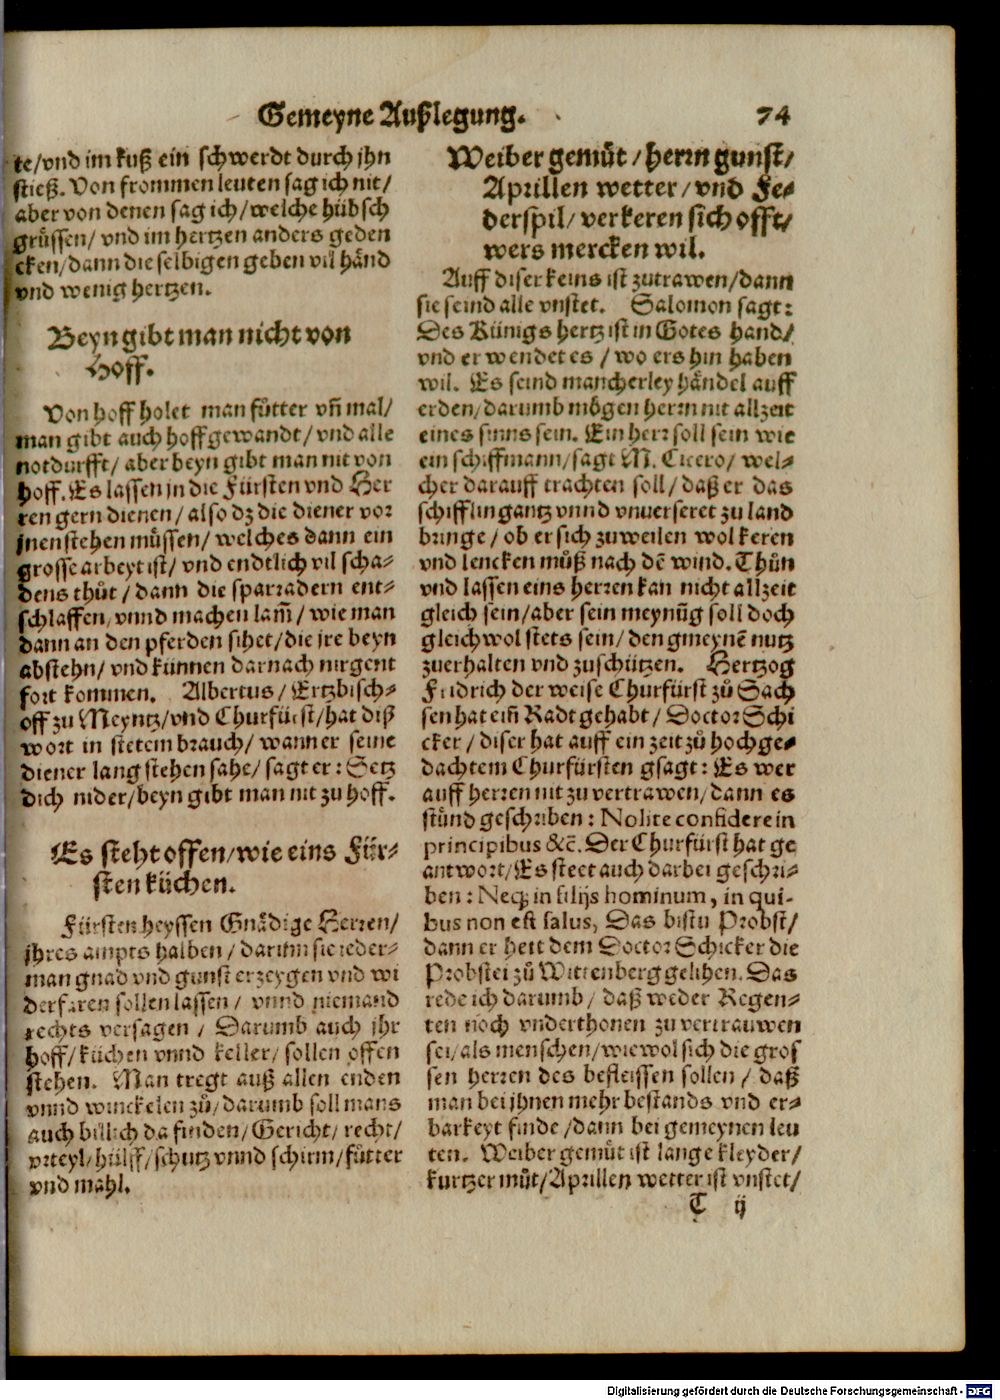 Gemeyne Außlegung. 74
te/vnd im kuß ein schwerdt durch jhn
stieß. Von frommen leuten sag ich nit/
aber von denen sag ich/welche hübsch
grüssen/ vnd im hertzen anders geden
cken/dann die selbigen geben vil händ
vnd wenig hertzen.
Beyn gibt man nicht von
Hoff.
Von hoff holet man fůtter vñ mal/
man gibt auch hoffgewandt/vnd alle
notdurfft/ aber beyn gibt man nit von
hoff. Es lassen jn die Fürsten vnd Her
ren gern dienen/ also dz die diener vor
jnen stehen můssen/ welches dann ein
grosse arbeyt ist/ vnd endtlich vil scha-
dens thůt/ dann die sparradern ent-
schlaffen/vnnd machen lam̃/ wie man
dann an den pferden sihet/die jre beyn
abstehn/ vnd künnen darnach nirgent
fort kommen. Albertus/ Ertzbisch-
off zu Meyntz/vnd Churfürst/hat diß
wort in stetem brauch/ wann er seine
diener lang stehen sahe/ sagt er: Setz
dich nider/beyn gibt man nit zu hoff.
Es steht offen/wie eins Für-
sten küchen.
Fürsten heyssen Gnädige Herren/
jhres ampts halben/ darum sie ieder-
man gnad vnd gunst erzeygen vnd wi
derfaren sollen lassen/ vnnd niemand
rechts versagen/ Darumb auch jhr
hoff/küchen vnnd keller/ sollen offen
stehen. Man tregt auß allen enden
vnnd winckelen zů/darumb soll mans
auch billich da finden/Gericht/ recht/
vrteyl/hülff/schutz vnnd schirm/fůtter
vnd mahl.
Weiber gemůt/herrn gunst/
Aprillen wetter/vnd Fe-
derspil/verkeren sich offt/
wers mercken wil.
Auff diser keins ist zutrawen/dann
sie seind alle vnstet. Salomon sagt:
Des Künigs hertz ist in Gotes hand/
vnd er wendet es/ wo ers hin haben
wil. Es seind mancherley händel auff
erden/darumb mögen herrn nit allzeit
eines sinns sein. Ein herr soll sein wie
ein schiffmann/sagt M. Cicero/ wel-
cher darauff trachten soll/daß er das
schifflin gantz vnnd vnuerseret zu land
bringe/ ob er sich zuweilen wol keren
vnd lencken můß nach dẽ wind. Thůn
vnd lassen eins herren kan nicht allzeit
gleich sein/aber sein meynũg soll doch
gleichwol stets sein/den gmeynẽ nutz
zuerhalten vnd zuschützen. Hertzog
Fridrich der weise Churfürst zů Sach
sen hat ein̄ Radt gehabt/ Doctor Schi
cker/ diser hat auff ein zeit zů hochge-
dachtem Churfürsten gsagt: Es wer
auff herren nit zu vertrawen/dann es
stünd geschriben: Nolite confidere in
principibus &c̃. Der Churfürst hat ge
antwort/Es steet auch darbei geschri-
ben: Neq; in filijs hominum, in qui-
bus non est salus, Das bistu Probst/
dann er hett dem Doctor Schicker die
Probstei zů Wittenberg gelihen. Das
rede ich darumb/ daß weder Regen-
ten noch vnderthonen zu vertrauwen
sei/als menschen/wiewol sich die gros
sen herren des befleissen sollen/ daß
man bei jhnen mehr bestands vnd er-
barkeyt finde/dann bei gemeynen leu
ten. Weiber gemůt ist lange kleyder/
kurtzer můt/Aprillen wetter ist vnstet/
T ij
Digitalisierung gefördert durch die Deutsche Forschungsgemeinschaft - DFG